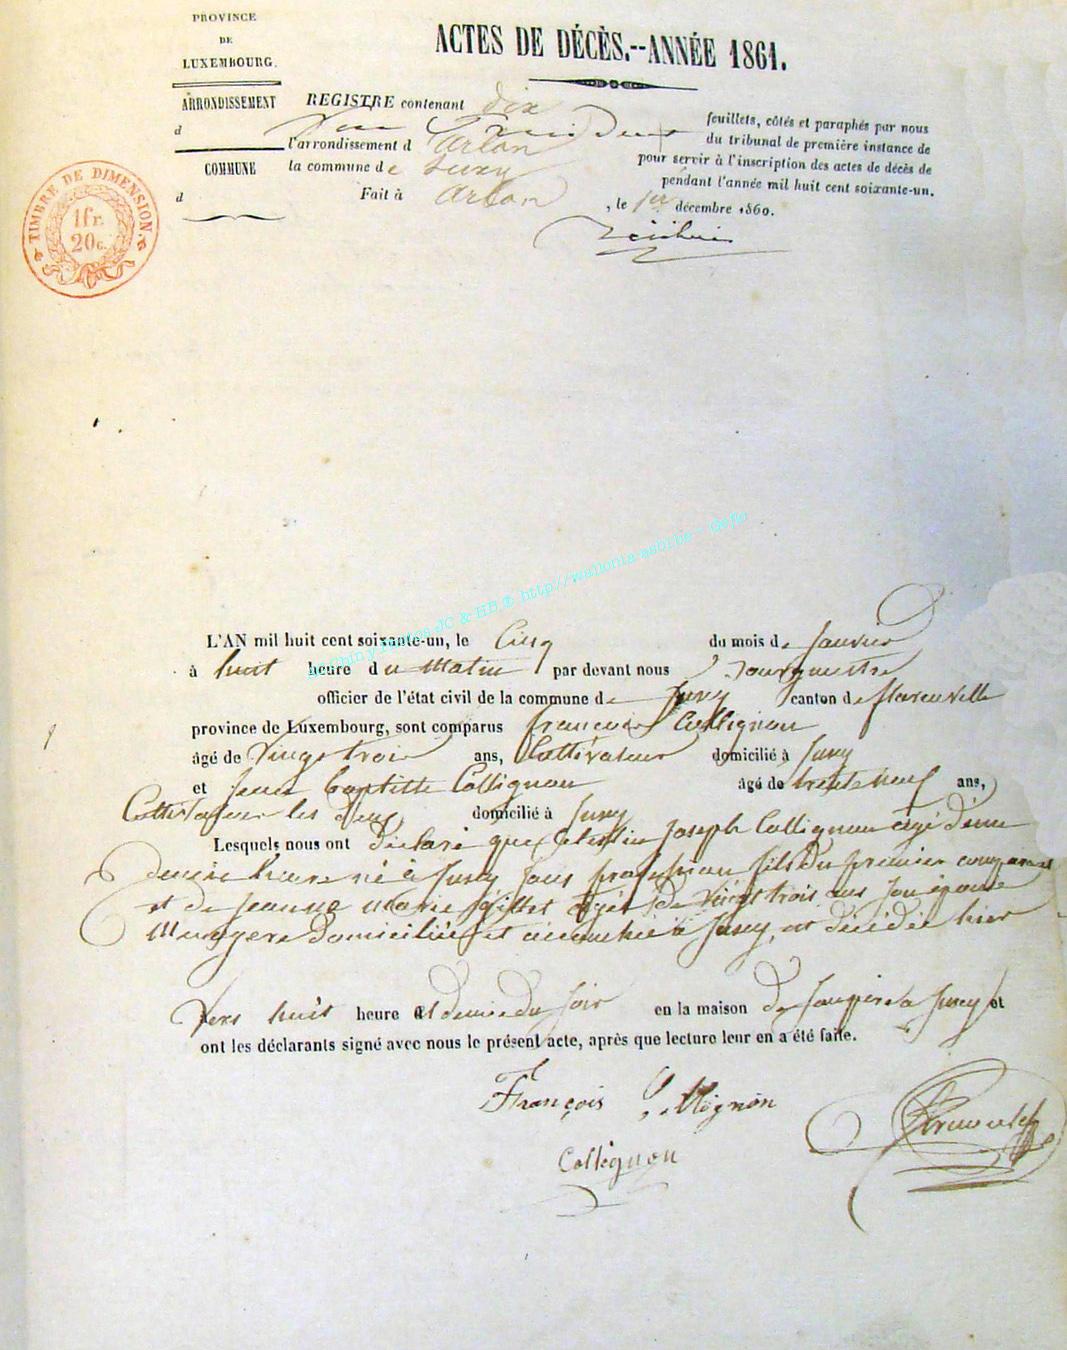 PROVINCE
DE
LUXEMBOURG.
ARRONDISSEMENT
d
COMMUNE
d
TIMBRE DE DIMENSION.
1fr.
20c.
ACTES DE DÉCÈS.--ANNÉE 1861.
REGISTRE contenant dix feuillets, côtés et paraphés par nous
du tribunal de première instance de
l'arrondissement d Arlon pour servir à l'inscription des actes de décès de
la commune de Juzy pendant l'année mil huit cent soixante-un.
Fait à Arlon, le 1er décembre 1860.
http//wallonia-asbl.be - GeJo
L'AN mil huit cent soixante-un, le Cinq du mois de Janvier
à huit heure du matin par devant nous Bourgmestre
officier de l'état civil de la commune de Jusey canton de florenville
province de Luxembourg, sont comparus francois Collignon
âgé de vingt trois ans, Cultivateur domicilié à Jusey
et Jean baptiste Collignon âgé de trente neuf ans,
Cultivateur les deux domicilié à Jusey
Lesquels nous ont déclaré que Celestin Joseph Collignon agé d'une
demie heure né à Jusey sans profession fils du premier comparant
et de Jeanne Marie Gillet agée de vingt trois ans son épouse
Menagere domiciliée et accouchée à Jusey, est décédée hier
Vers huit heure et demie du soir en la maison de son pere à Jusey et
ont les déclarants signé avec nous le présent acte, après que lecture leur en a été faite.
François Collignon
Collignon